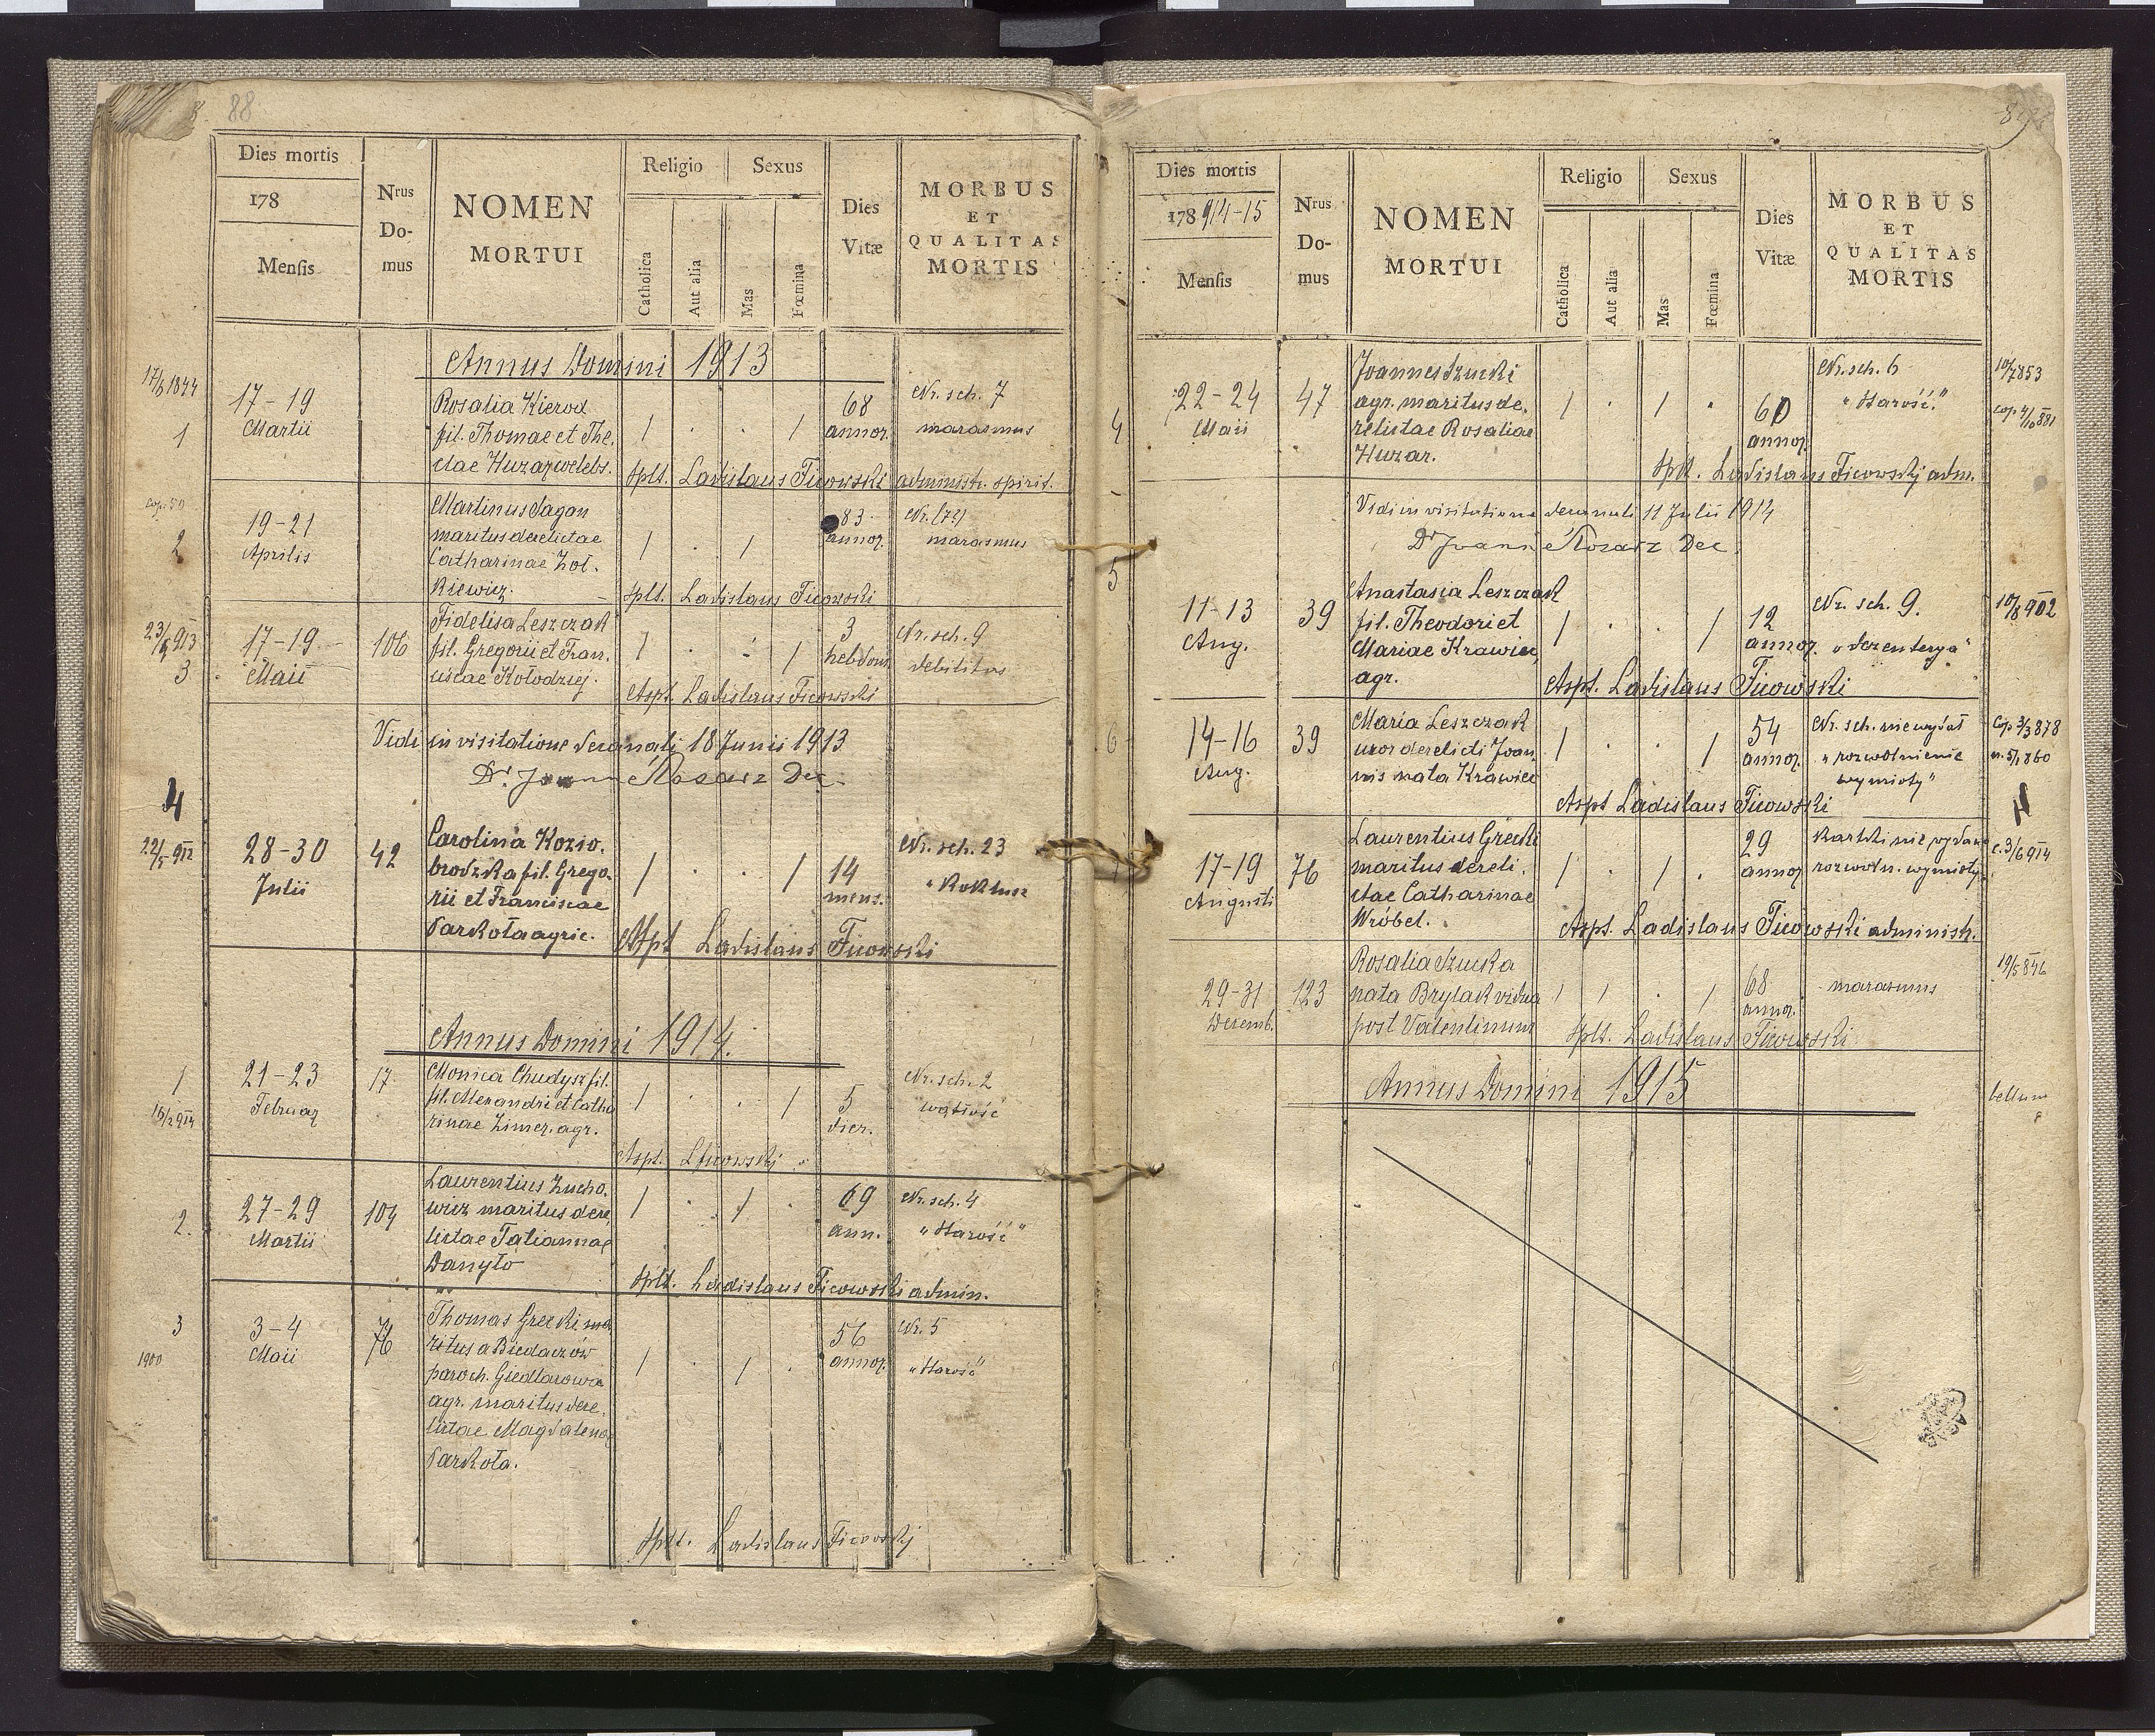 88
Dies mortis
178
Mensis
Nrus
Do-
mus
NOMEN
MORTUI
Religio
Catholica
Aut alia
Sexus
Mas
Fœmina
Dies
Vitæ
MORBUS
ET
QUALITAS
MORTIS
Annus Domini 1913
1
17-19
Martii
Rosalia Kierod
fil. Thomae et The.
clae Huzar
68
annor.
Nr. sch. 7
marasmus
splt. Ladislaus Ficowski administr. spirit.
2
19-21
Aprilis
Martinus Sagan
maritus derelictae
Catharinae Żół.
kiewicz.
83
annor.
marasmus
splt. Ladislaus Ficowski
3
17-19
Maii
106
Fidelisa Leszczak
fil. Gregorii et Fran.
ciscae Kołodziej.
3
hebdom.
Nr. sch. 9
debilitas
Aspt. Ladislaus Ficowski
Vidi in visitatione decanali 18 Junii 1913
Dr. Joann Kosarz Dec.
4
28-30
Julii
42
Carolina Kozio.
brodzka fil. Grego.
rii et Franciscae
Parkoła agric.
14
mens.
Nr. sch. 23
"Koklusz
Aspt Ladislaus Ficowski
Annus Domini 1914.
1
21-23
Februar
17
Monica Chudysz fil.
fil. Alexandri et Catha
rinae Zimer. agr.
5
dier.
Nr. sch. 2
wątłość
Aspt. LFicowski
2.
27-29
Martii
104
Laurentius Żucho.
wicz maritus dere.
lictae Tatiannae
Danyło
69
ann.
Nr. sch. 4
"Starość"
splt. Ladislaus Ficowski admin.
3
1900
3-4
Maii
76
Thomas Grecki ma
ritus a Biedaczów
paroch. Giedlarowa
agr. maritus dere.
lictae Magdalenae
Parkoła.
56
annor.
Nr. 5
"Starość"
splt. Ladislaus Ficowski
89
Dies mortis
178 914-15
Mensis
Nrus
Do-
mus
NOMEN
MORTUI
Religio
Catholica
Aut alia
Sexus
Mas
Fœmina
Dies
Vitæ
MORBUS
ET
QUALITAS
MORTIS
4
22-24
Maii
47
Joannes Szucki
agr. maritus de.
relictae Rosaliae
Huzar.
60
annor.
Nr. sch. 6
"Starość."
splt. Ladislaus Ficowski adm.
Vidi in visitatione decanali 11 Julii 1914
Dr Joann Kosarz Dec.
5
11-13
Aug.
39
Anastasia Leszczak
fil. Theodori et
Mariae Krawiec,
agr.
12
annor.
Nr. sch. 9.
"dezenterya"
10/8 902
Aspt. Ladislaus Ficowski
6
14-16
Aug.
39
Maria Leszczak
uxor derelicti Joan
nis nata Krawiec
54
annor.
Nr. sch. nie wydał
"rozwolnienie
wymioty"
Cop 3/3 878
Aspt Ladislaus Ficowski
17-19
Augusti
76
Laurentius Grecki
maritus dereli.
ctae Catharinae
Wróbel.
29
annor
kartki nie wydano
rozwoln. wymioty
c. 3/6 914
Aspt. Ladislaus Ficowski administr.
29-31
Decemb.
123
Rosalia Szucka
nata Brylak vidua
post Valentinum
68
annor.
marasmus
19/5 846
splt. Ladislaus Ficowski
Annus Domini 1915
bellum